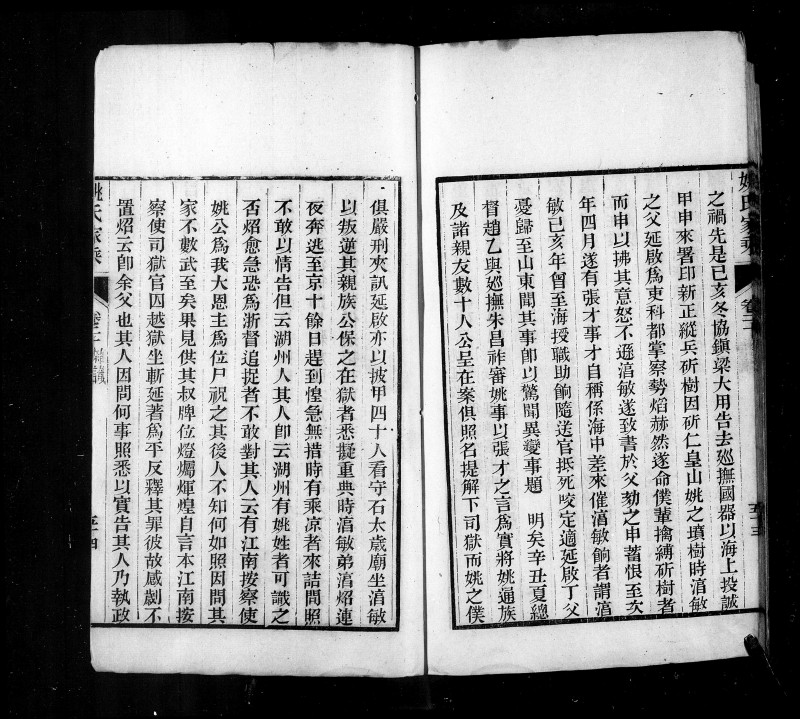 姚氏家乘
卷三
五十三
之禍先是已亥冬協鎮梁大用告去廵撫國器以海上投誠
甲申來署印新正縱兵斫樹因斫仁皇山姚之墳樹時淯敏
之父延啟爲吏科都掌察勢焰赫然遂命僕輩擒縛斫樹者
而申以拂其意怒不遜淯敏遂致書於父劾之申蓄恨至次
年四月遂有張才事才自稱係海中差來催淯敏餉者謂淯
敏已亥年曾至海授職助餉隨送官抵死咬定適延啟丁父
憂歸至山東聞其事卽以驚聞異變事題　明矣辛丑夏總
督趙乙與廵撫朱昌祚審姚事以張才之言爲實將姚通族
及諸親友數十人公呈在案俱照名提解下司獄而姚之僕
俱嚴刑夾訊延啟亦以披甲四十人看守石太歲廟坐淯敏
以叛逆其親族公保之在獄者悉擬重典時淯敏弟淯炤連
夜奔逃至京十餘日趕到惶急無措時有乘凉者來詰問照
不敢以情告但云湖州人其人卽云湖州有姚姓者可識之
否炤愈急恐爲浙督追捉者不敢對其人云有江南按察使
姚公爲我大恩主爲位尸祝之其後人不知何如照因問其
家不數武至矣果見供其叔牌位燈燭煇煌自言本江南按
察使司獄官因越獄坐斬延著爲平反釋其罪彼故感劇不
置炤云卽余父也其人因問何事照悉以實告其人乃執政
姚氏家乘
卷三
五十四